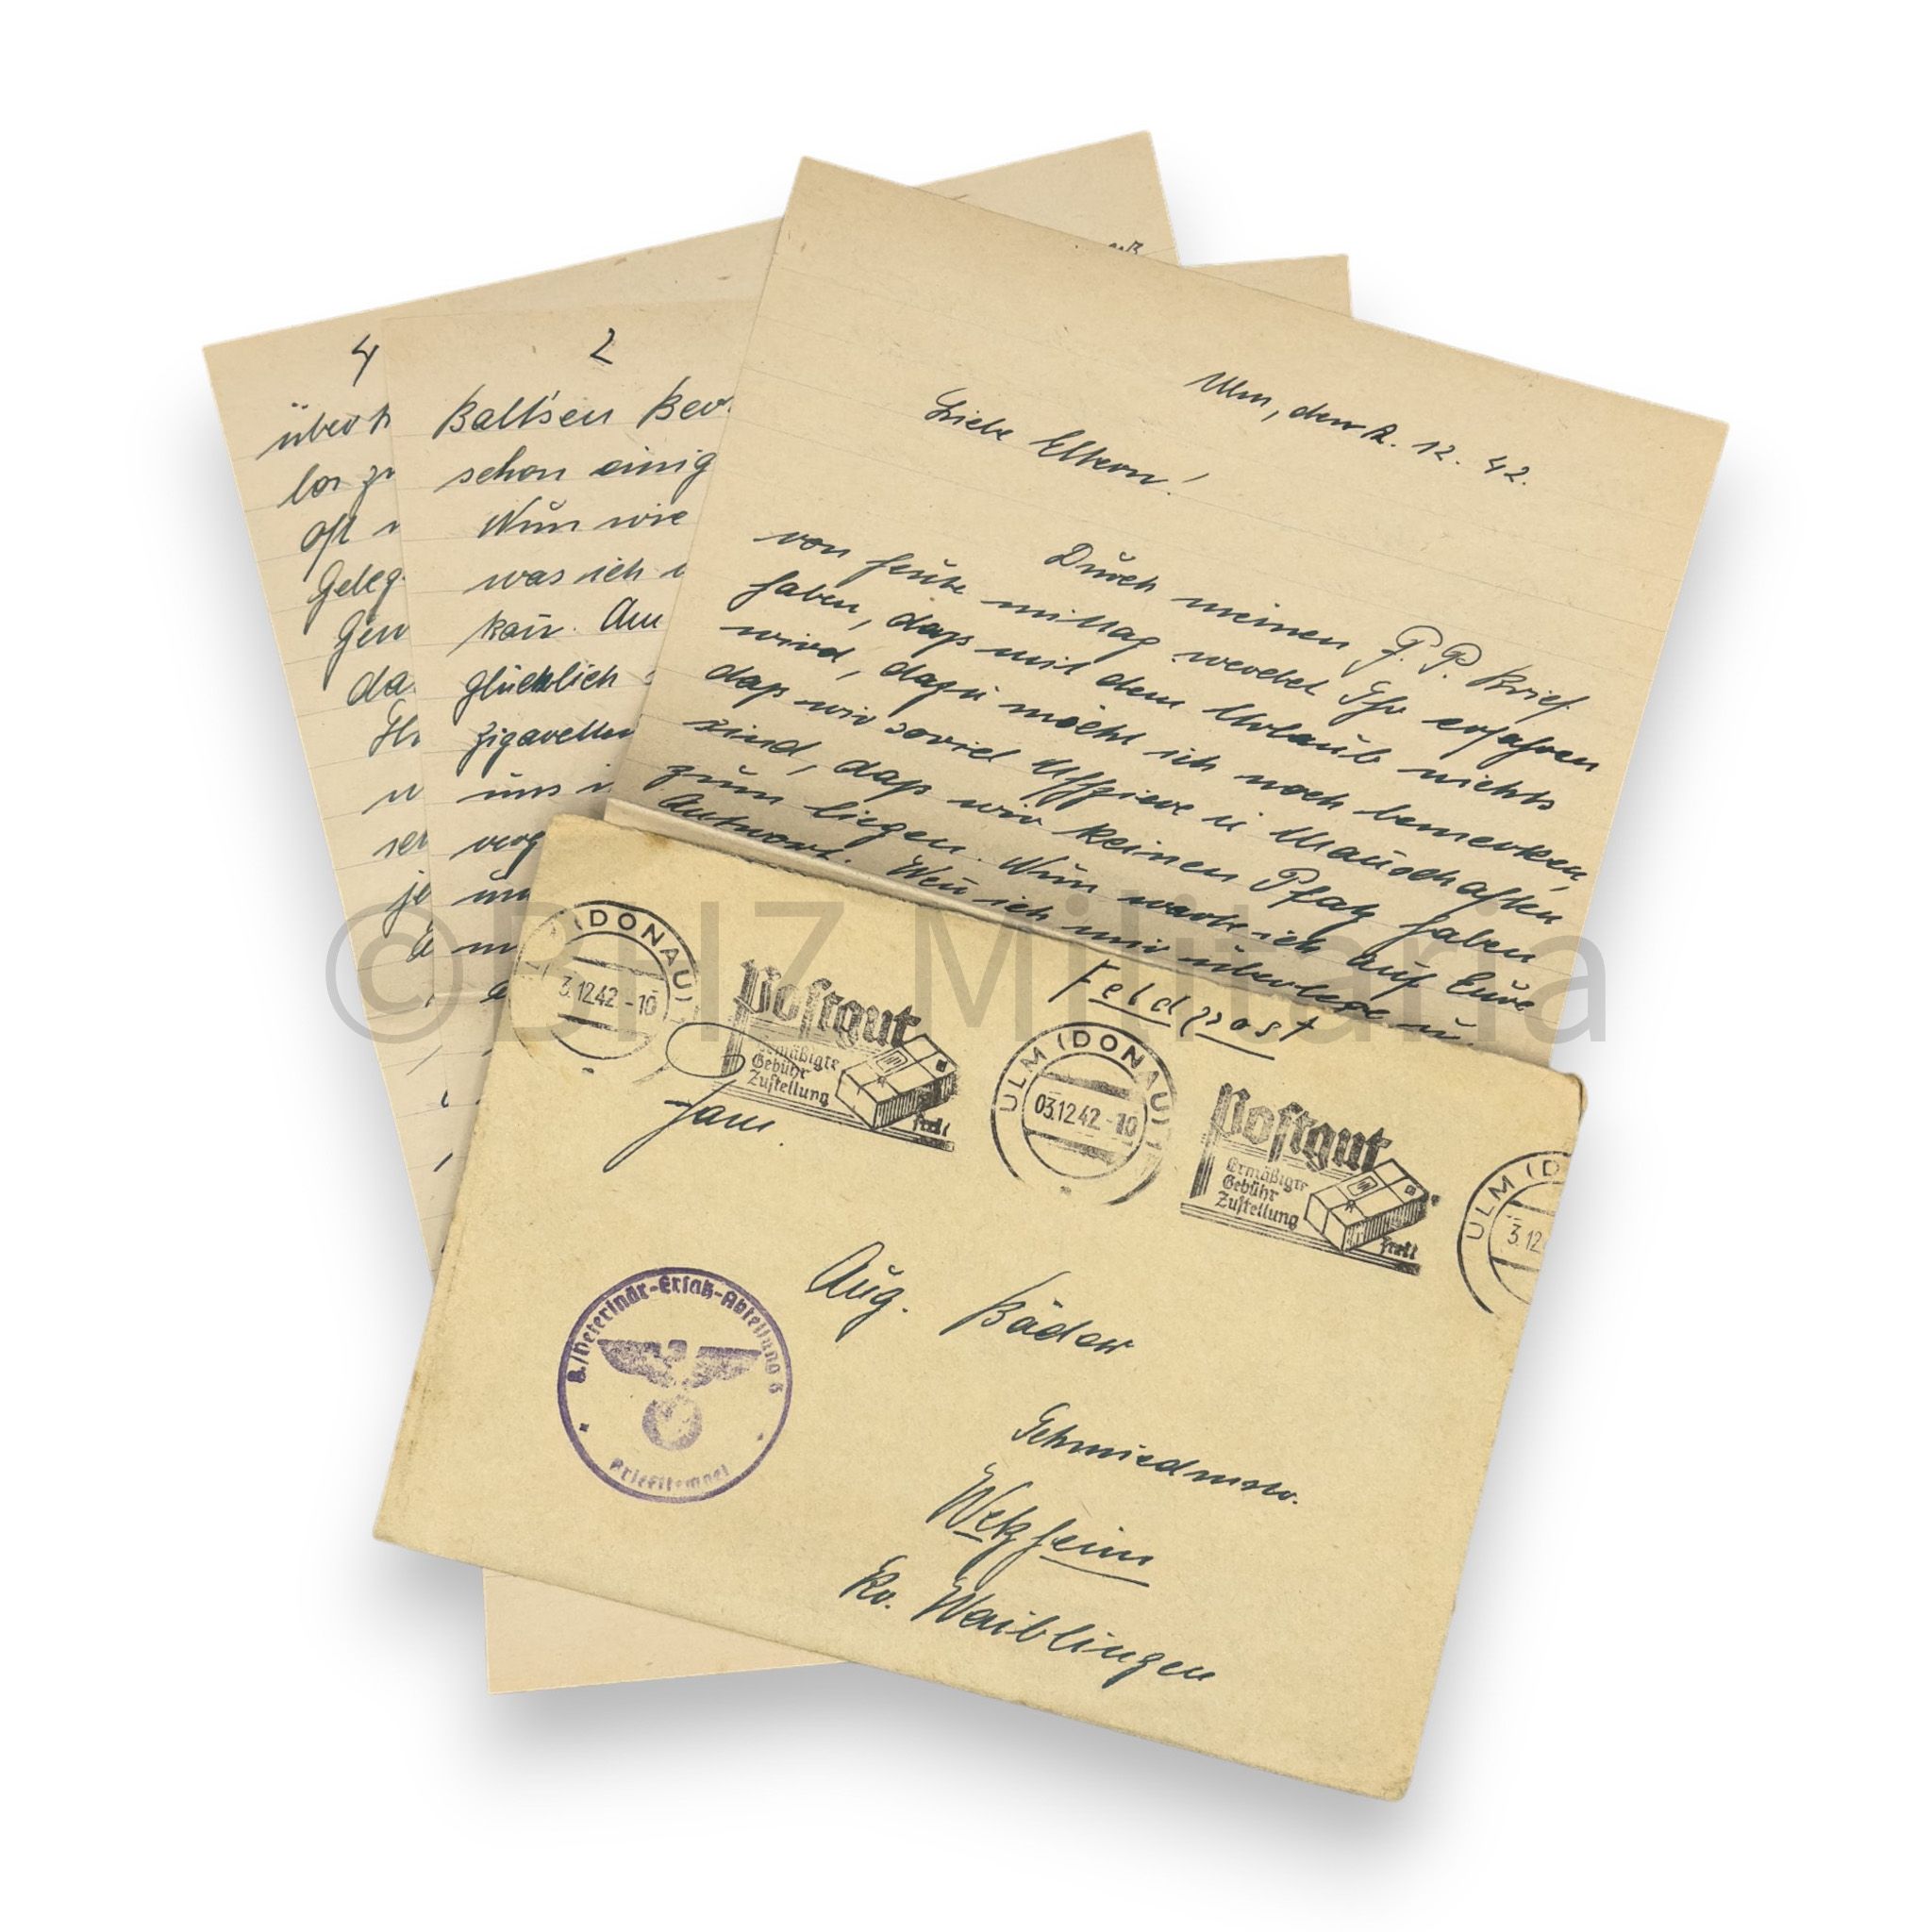 4
über
los
oft
Geleg
da
2
Ballsen Bev
schon einig
Nun wie
was ich
kan̄. Am
glücklich
Zigaretten
uns
verg
Ulm, den 2. 12. 42.
Liebe Eltern!
Durch meinen F. P. Brief
von heute mittag werdet Ihr erfahren
haben, daß mit dem Urlaub nichts
wird, dazu möcht ich noch bemerken,
daß wir soviel Uffziere u Man̄schaften
sind, daß wir keinen Platz haben
zum liegen. Nun warte ich auf Eure
Antwort. Wen̄ ich mir überlege u.
Feldpost
ULM (DONAU)
3.12.42.-10
Postgut
Ermäßigte
Gebühr
Zustellung
frei
ULM (DONAU)
03.12.42.-10
Postgut
Ermäßigte
Gebühr
Zustellung
frei
ULM (D
3.12
Aug. Bäder
Schmiedmstr.
Welzheim
Kr. Waiblingen
B./Veterinär-Ersatz-Abteilung 5
Briefstempel
©BHZ Militaria